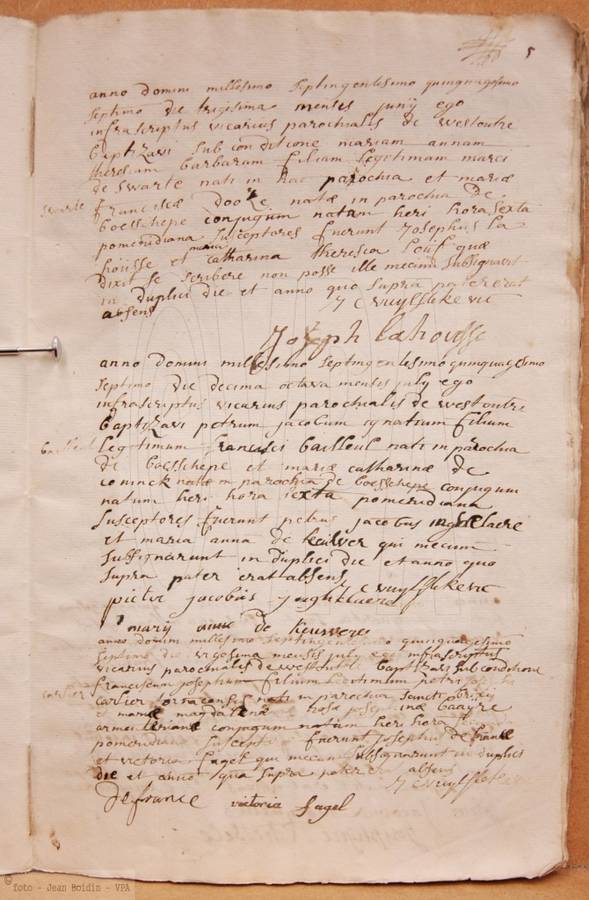 5
anno domini millesimo septingentesimo quinquagesimo
septimo die trigesima mensis junÿ ego
infrascriptus vicarius parochialis de westoutre
baptizavi sub conditione mariam annam
theresiam barbaram filiam legitimam marci
de swarte nati in hac parochia et mariæ
swarte
franciscæ natæ in parochia de
boesschepe conjugum natam heri hora sexta
pomeridiana susceptores fuerunt josephus la
housse et maria catharina theresia quæ
dixit se scribere non posse ille mecum subsignavit
in duplici die et anno quo supra pater erat
absens J C vuylstekevic
Joseph lahousse
anno domini millesimo septingentesimo quinquagesimo
septimo die decima octava mensis july ego
infrascriptus vicarius parochialis de westoutre
baptizavi petrum jacobum ignatium filium
bailleul
legitimum francisci bailleul nati in parochia
de boesschepe et mariæ catharinæ de
coninck natæ in parochia de boesschepe conjugum
natum heri hora sexta pomeridiana
susceptores fuerunt petrus jacobus inghelaere
et maria anna de keuwer qui mecum
subsignarunt in duplici die et anno quo
supra pater erat absens J C vuylstekevic
pieter jacobus
marÿ anne de
anno domini millesimo septingentesimo quinquagesimo
septimo die vigesima mensis july ego infrascriptus
vicarius parochialis de westoutre baptizavi sub conditione
franciscum josephum filium legitimum petri
cartier
cartier nati in parochia sancti
et mariæ magdalenæ rosa josephinæ
conjugum natum heri hora
pomeridiana susceptores fuerunt josephus de france
et victoria fagel qui mecum subsignarunt in duplici
die et anno quo supra pater erat absens
J C vuylsteke
De france victoria fagel
© foto - Jean Boidin - VPA